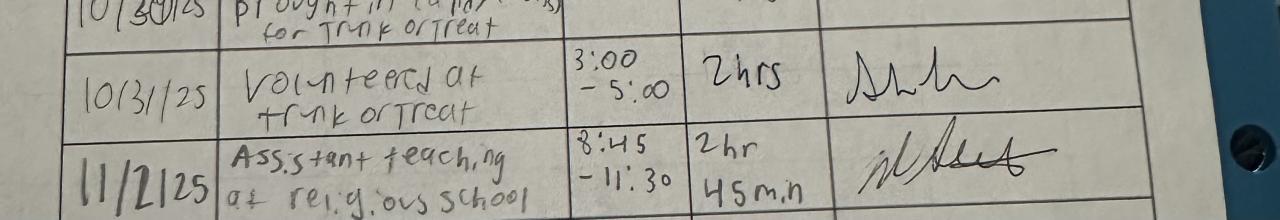 10/30/25
brought in candy
for Trunk or Treat
10/31/25
Volunteered at
trunk or Treat
3:00
- 5:00
2hrs
11/2/25
Assistant teaching
at religious school
8:45
- 11:30
2hr
45min